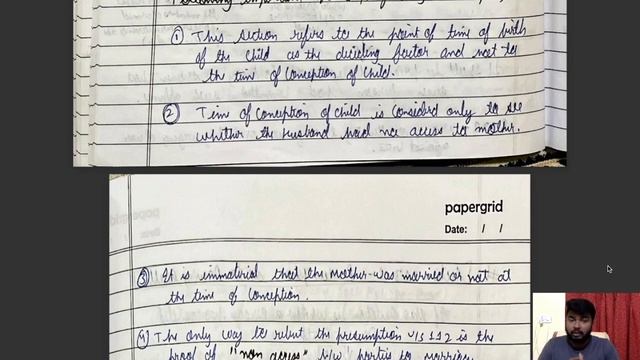 ① This section refers to the point of time of birth
of the child as the deciding factor and not to
the time of conception of child.
② Time of conception of child is considerd only to see
whether the husband had no access to mother.
papergrid
Date: / /
③ It is immaterial that the mother was married or not at
the time of conception.
④ The only way to rebut the presumption u/s 112 is the
proof of "non access" b/w parties to marriage